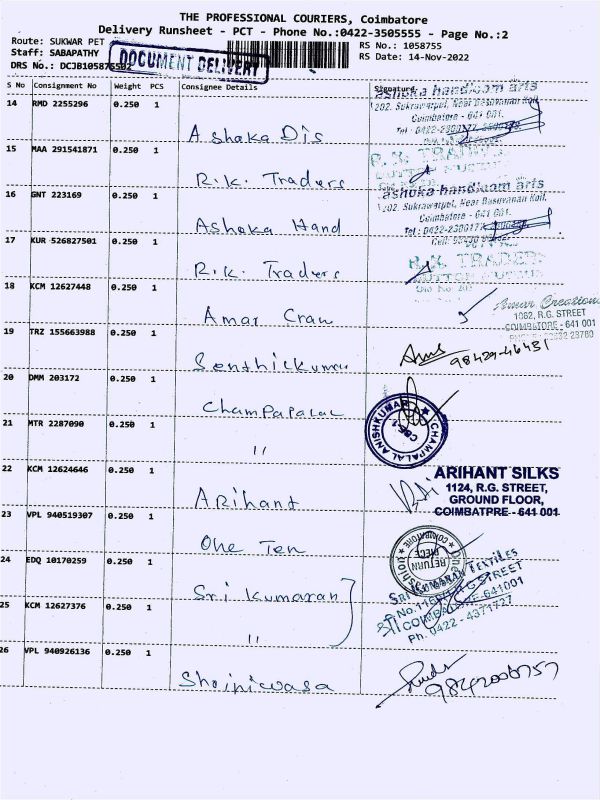 THE PROFESSIONAL COURIERS, Coimbatore
Delivery Runsheet - PCT - Phone No.:0422-3505555 - Page No.:2
Route: SUKWAR PET
RS No.: 1058755
Staff: SABAPATHY
RS Date: 14-Nov-2022
DRS No.: DCJB105875
DOCUMENT DELIVERY
S No Consignment No Weight PCS Consignee Details Signature
14 RMD 2255296 0.250 1 Ashaka Dis
ashoka handloom arts
202. Sukrawarpet, Near Basuvanan Koil,
Coimbatore - 641 001.
15 MAA 291541871 0.250 1 R.K. Traders
R. K. TRADERS
16 GNT 223169 0.250 1 Ashoka Hand
ashoka handloom arts
202. Sukrawarpet, Near Basuvanan Koil,
Coimbatore - 641 001.
17 KUR 526827501 0.250 1 R.K. Traders
R. K. TRADERS
18 KCM 12627448 0.250 1 Amar Crau
Amar Creations
1082, R.G. STREET
COIMBATORE - 641 001
19 TRZ 155663988 0.250 1 Senthilkumar
98429-46431
20 DMM 203172 0.250 1 Champalal
CHAMPALAL ANISHKUMAR
CBE-1
21 MTR 2287090 0.250 1 "
22 KCM 12624646 0.250 1 Arihant
ARIHANT SILKS
1124, R.G. STREET,
GROUND FLOOR,
COIMBATPRE - 641 001
23 VPL 940519307 0.250 1 One Ten
COIMBATORE
RETURN
PIECE
24 EDQ 10170259 0.250 1 Sri Kumaran
SRI KUMARAN TEXTILES
STREET
COIMBATORE-641001
Ph: 0422-4371727
25 KCM 12627376 0.250 1 "
26 VPL 940926136 0.250 1 Shriniwasa